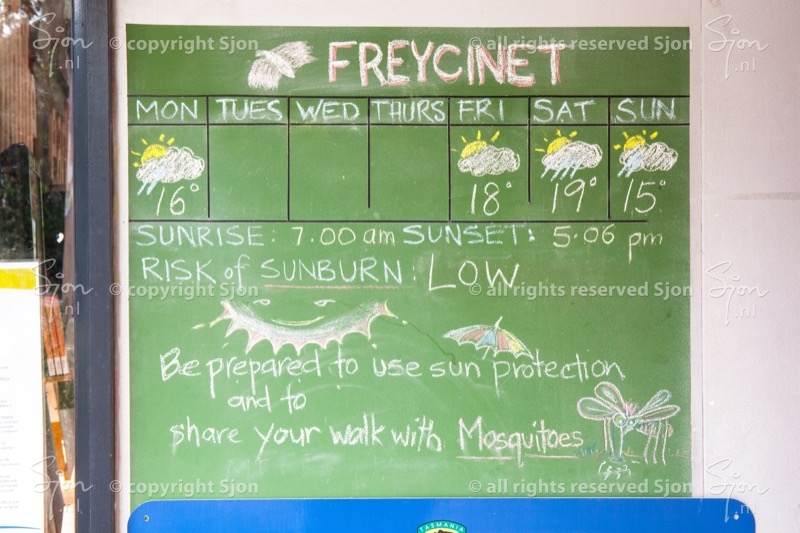 FREYCINET
MON TUES WED THURS FRI SAT SUN
16° 18° 19° 15°
SUNRISE: 7.00 am SUNSET: 5.06 pm
RISK of SUNBURN: LOW
Be prepared to use sun protection
and to
share your walk with Mosquitoes
TASMANIA
© copyright Sjon © all rights reserved Sjon
Sjon.nl
© copyright Sjon © all rights reserved Sjon
Sjon.nl
© copyright Sjon © all rights reserved Sjon
Sjon.nl